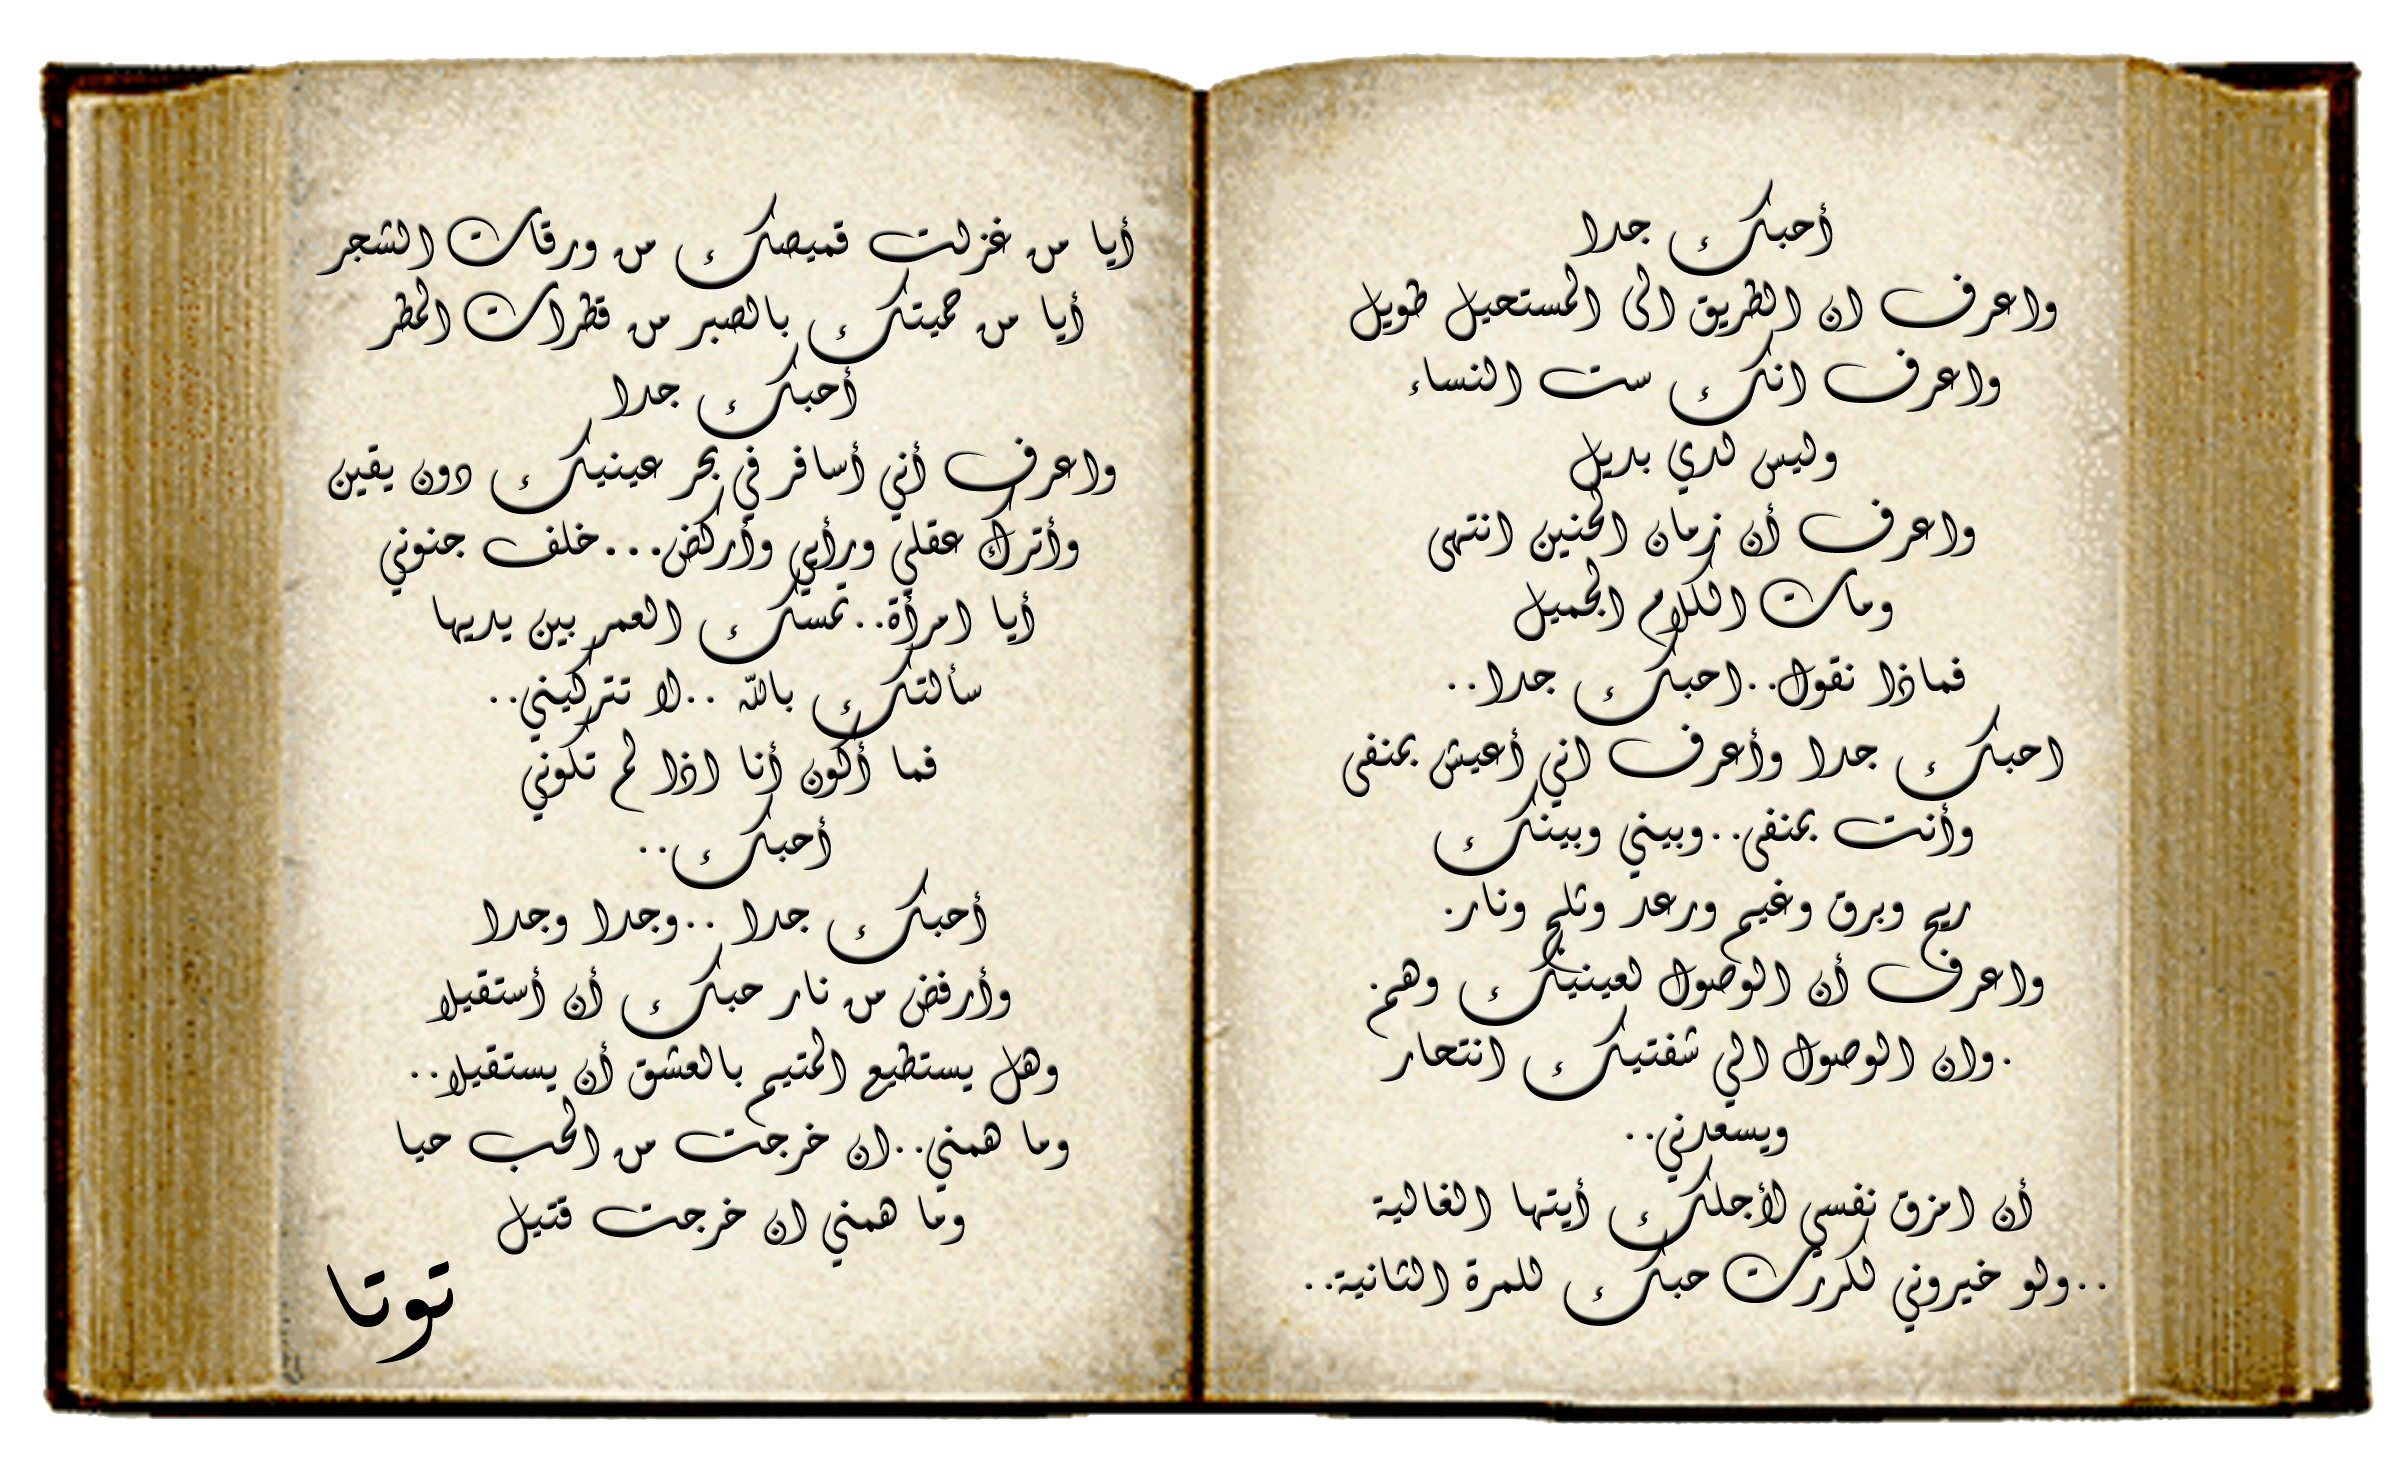 أحبك جدا
واعرف ان الطريق الى المستحيل طويل
واعرف انك ست النساء
وليس لدي بديل
واعرف أن زمان الحنين انتهى
ومات الكلام الجميل
فماذا نقول..احبك جدا..
احبك جدا وأعرف اني أعيش بمنفى
وأنت بمنفى..وبيني وبينك
ريح وبرق وغيم ورعد وثلج ونار.
واعرف أن الوصول لعينيك وهم.
.وان الوصول الي شفتيك انتحار
ويسعدني..
أن امزق نفسي لأجلك أيتها الغالية
..ولو خيروني لكررت حبك للمرة الثانية..
أيا من غزلت قميصك من ورقات الشجر
أيا من حميتك بالصبر من قطرات المطر
أحبك جدا
واعرف أني أسافر في بحر عينيك دون يقين
وأترك عقلي ورأيي وأركض...خلف جنوني
أيا امرأة..تمسك العمر بين يديها
سألتك بالله ..لا تتركيني..
فما أكون أنا اذا لم تكوني
أحبك..
أحبك جدا ..وجدا وجدا
وأرفض من نار حبك أن أستقيلا
وهل يستطيع المتيم بالعشق أن يستقيلا..
وما همني..ان خرجت من الحب حيا
وما همني ان خرجت قتيل
توتا